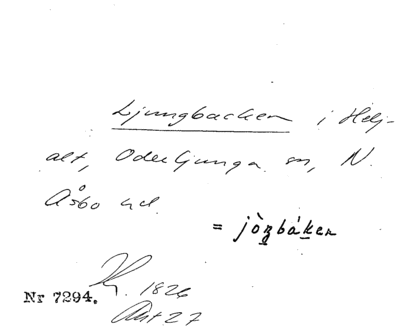 Ljungbacken i Hälj-
alt, Oderljunga sn, N.
Åsbo hd.
= jòʒbáken
Nr 7294. 1826
27